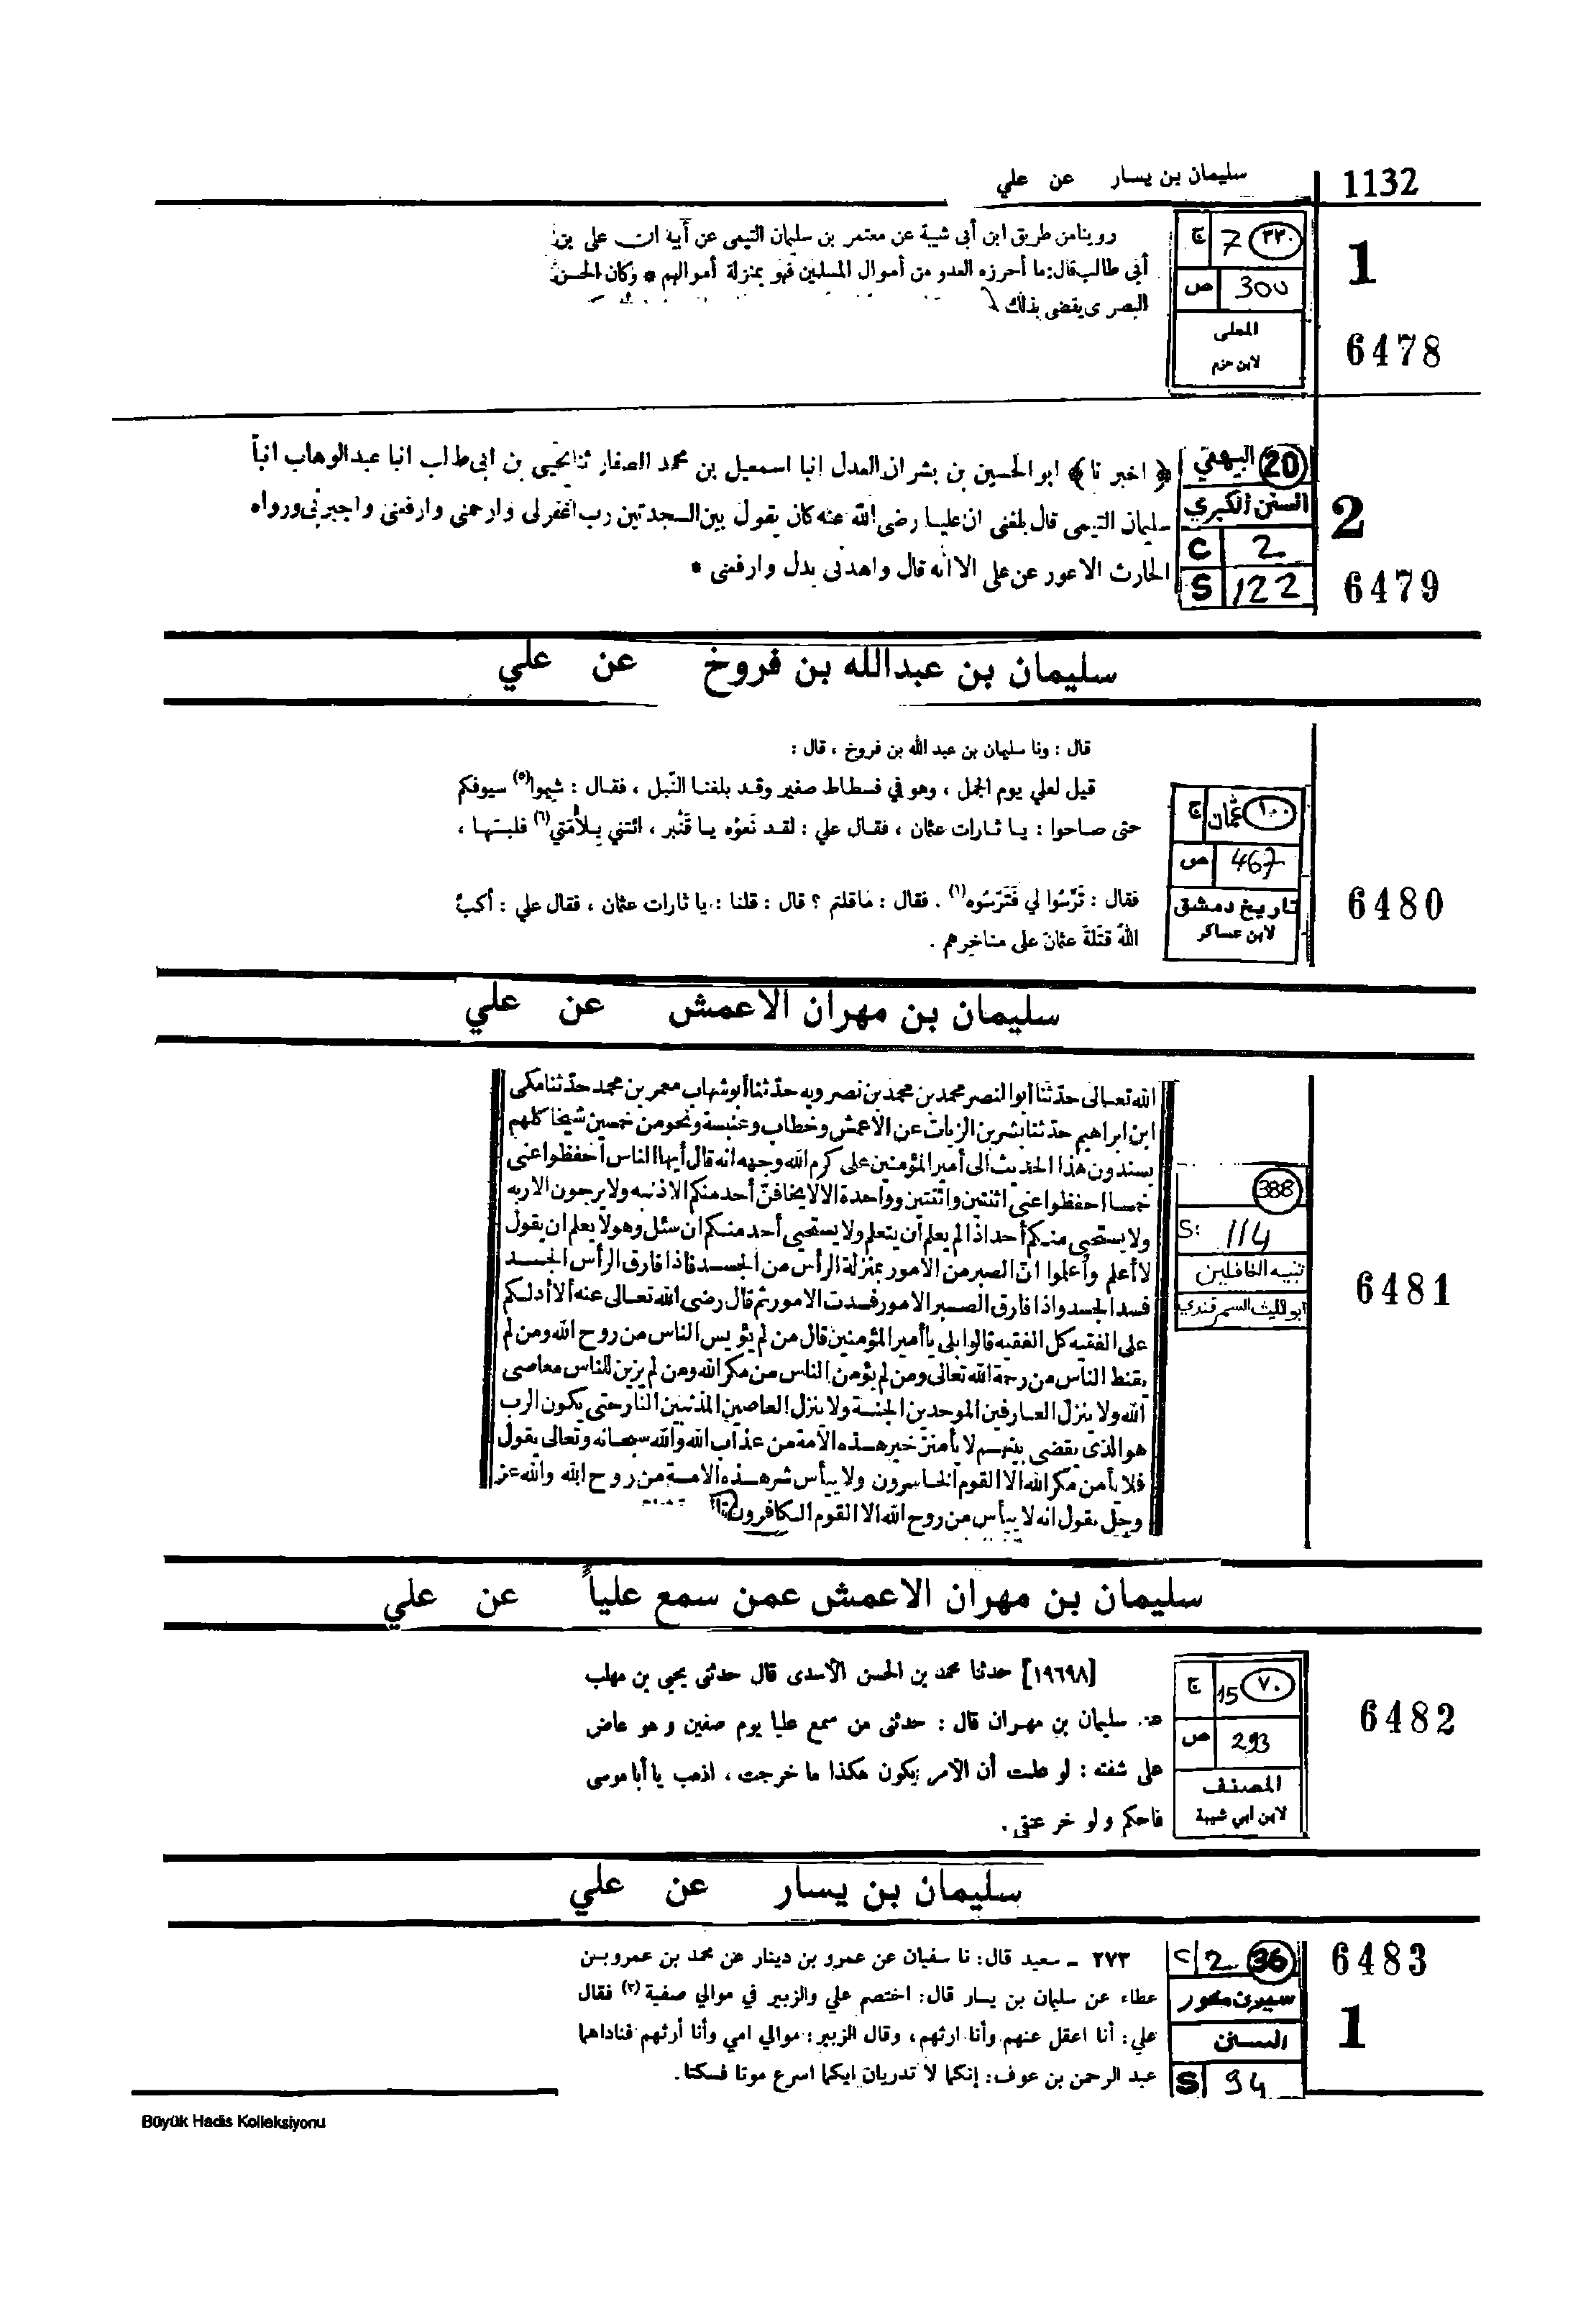 سليمان بن يسار عن علي
1132
روينا من طريق ابن أبى شيبة عن معتمر بن سليمان التيمى عن أبيه ان على بن
أبي طالب قال: ما أحرزه العدو من أموال المسلمين فهو بمنزلة أموالهم * وكان الحسن
البصرى يقضى بذلك
ج 7 ٣٣٠
ص 300
المحلى
لابن حزم
1
6478
﴿ اخبرنا ﴾ ابو الحسين بن بشران العدل انبا اسمعيل بن محمد الصفار ثنا يحيى بن ابى طالب انبا عبدالوهاب انبأ
سليمان التيمى قال بلغنى ان عليا رضى الله عنه كان يقول بين السجدتين رب اغفرلى وارحمنى وارفعنى واجبرنى ورواه
الحارث الاعور عن على الا انه قال واهدنى بدل وارفعنى *
البيهقي 20
السنن الكبري
C 2
S 122
2
6479
سليمان بن عبدالله بن فروخ عن علي
قال : ونا سليمان بن عبد الله بن فروخ ، قال :
قيل لعلي يوم الجمل ، وهو في فسطاط صغير وقد بلغنا النّبل ، فقال : شيموا(٥) سيوفكم
حتى صاحوا : يا ثارات عثمان ، فقال علي : لقد نَعَوْه يا قَنْبر ، ائتني بِلأمَتي(٦) فلبسها ،
فقال : تَرّسُوا لي فَتَرّسُوه(١) . فقال : ماقلتم ؟ قال : قلنا : يا ثارات عثمان ، فقال علي : أكبَّ
اللهُ قتَلةَ عثمانَ على مناخرِهم .
ج عثمان ١٠٠
ص 467
تاريخ دمشق
لابن عساكر
6480
سليمان بن مهران الاعمش عن علي
الله تعالى حدّثنا أبو النصر محمد بن محمد بن نصرويه حدّثنا أبو شهاب معمر بن محمد حدّثنا مكى
ابن ابراهيم حدثنا بشر بن الزيات عن الاعمش وخطاب وعنبسة ونحو من خمسين شيخا كلهم
يسندون هذا الحديث الى أمير المؤمنين على كرم الله وجهه انه قال أيها الناس احفظوا عنى
خمسا احفظوا عنى اثنتين واثنتين وواحدة الا لا يخافنّ أحد منكم الا ذنبه ولا يرجون الا ربه
ولا يستحيى منكم أحد اذا لم يعلم أن يتعلم ولا يستحيى أحد منكم ان سئل وهو لا يعلم ان يقول
لا أعلم وأعلموا انّ الصبر من الامور بمنزلة الرأس من الجسد فاذا فارق الرأس الجسد
فسد الجسد واذا فارق الصبر الامور فسدت الامور ثم قال رضى الله تعالى عنه ألا أدلكم
على الفقيه كل الفقيه قالوا بلى يا أمير المؤمنين قال من لم يؤيس الناس من روح الله ومن لم
يقنط الناس من رحمة الله تعالى ومن لم يؤمن الناس من مكر الله ومن لم يزين للناس معاصى
الله ولا ينزل العارفين الموحدين الجنة ولا ينزل العاصين المذنبين النار حتى يكون الرب
هو الذى يقضى بينهم لا يأمننّ خير هذه الامة من عذاب الله والله سبحانه وتعالى يقول
فلا يأمن مكر الله الا القوم الخاسرون ولا ييأس شر هذه الامة من روح الله والله عز
وجل يقول انه لا ييأس من روح الله الا القوم الكافرون
388
S: 114
تنبيه الغافلين
ابو الليث السمرقندي
6481
سليمان بن مهران الاعمش عمن سمع علياً عن علي
[١٩٦٩٨] حدثنا محمد بن الحسن الأسدى قال حدثنى يحيى بن مهلب
عن سليمان بن مهران قال : حدثنى من سمع عليا يوم صفين و هو عاض
على شفته : لو علمت أن الأمر يكون هكذا ما خرجت ، اذهب يا أبا موسى
فاحكم و لو خر عنقى .
ج 15 ٧٠
ص 293
المصنف
لابن ابي شيبة
6482
سليمان بن يسار عن علي
٢٧٣ ـ سعيد قال: نا سفيان عن عمرو بن دينار عن محمد بن عمرو بن
عطاء عن سليمان بن يسار قال: اختصم علي والزبير في موالي صفية (٣) فقال
علي: أنا اعقل عنهم وأنا ارثهم، وقال الزبير: موالي امي وأنا أرثهم فناداهما
عبد الرحمن بن عوف: إنكما لا تدريان ايكما اسرع موتا فسكتا.
C 2 36
السنن
S 94
6483
1
Büyük Hadis Kolleksiyonu